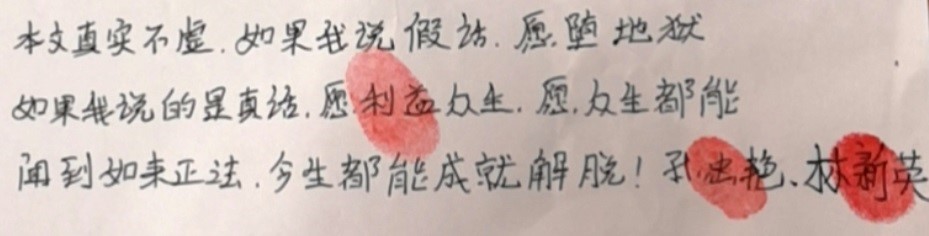 本文真实不虚.如果我说假话.愿堕地狱
如果我说的是真话.愿利益众生.愿.众生都能
闻到如来正法.今生都能成就解脱！孔忠艳、林新英